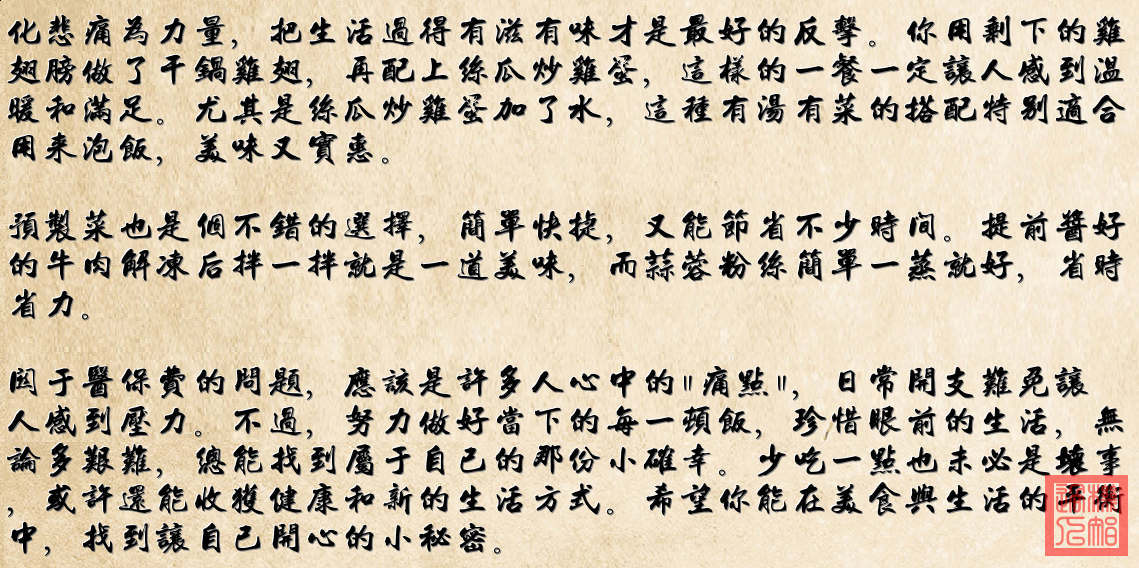 化悲痛為力量，把生活過得有滋有味才是最好的反擊。你用剩下的雞
翅膀做了干鍋雞翅，再配上絲瓜炒雞蛋，這樣的一餐一定讓人感到溫
暖和滿足。尤其是絲瓜炒雞蛋加了水，這種有湯有菜的搭配特别適合
用来泡飯，美味又實惠。
預製菜也是個不錯的選擇，簡單快捷，又能節省不少時间。提前醬好
的牛肉解凍后拌一拌就是一道美味，而蒜蓉粉絲簡單一蒸就好，省時
省力。
関于醫保費的問題，應該是許多人心中的"痛點"，日常開支難免讓
人感到壓力。不過，努力做好當下的每一頓飯，珍惜眼前的生活，無
論多艱難，總能找到屬于自己的那份小確幸。少吃一點也未必是壞事
，或許還能收獲健康和新的生活方式。希望你能在美食與生活的平衡
中，找到讓自己開心的小秘密。